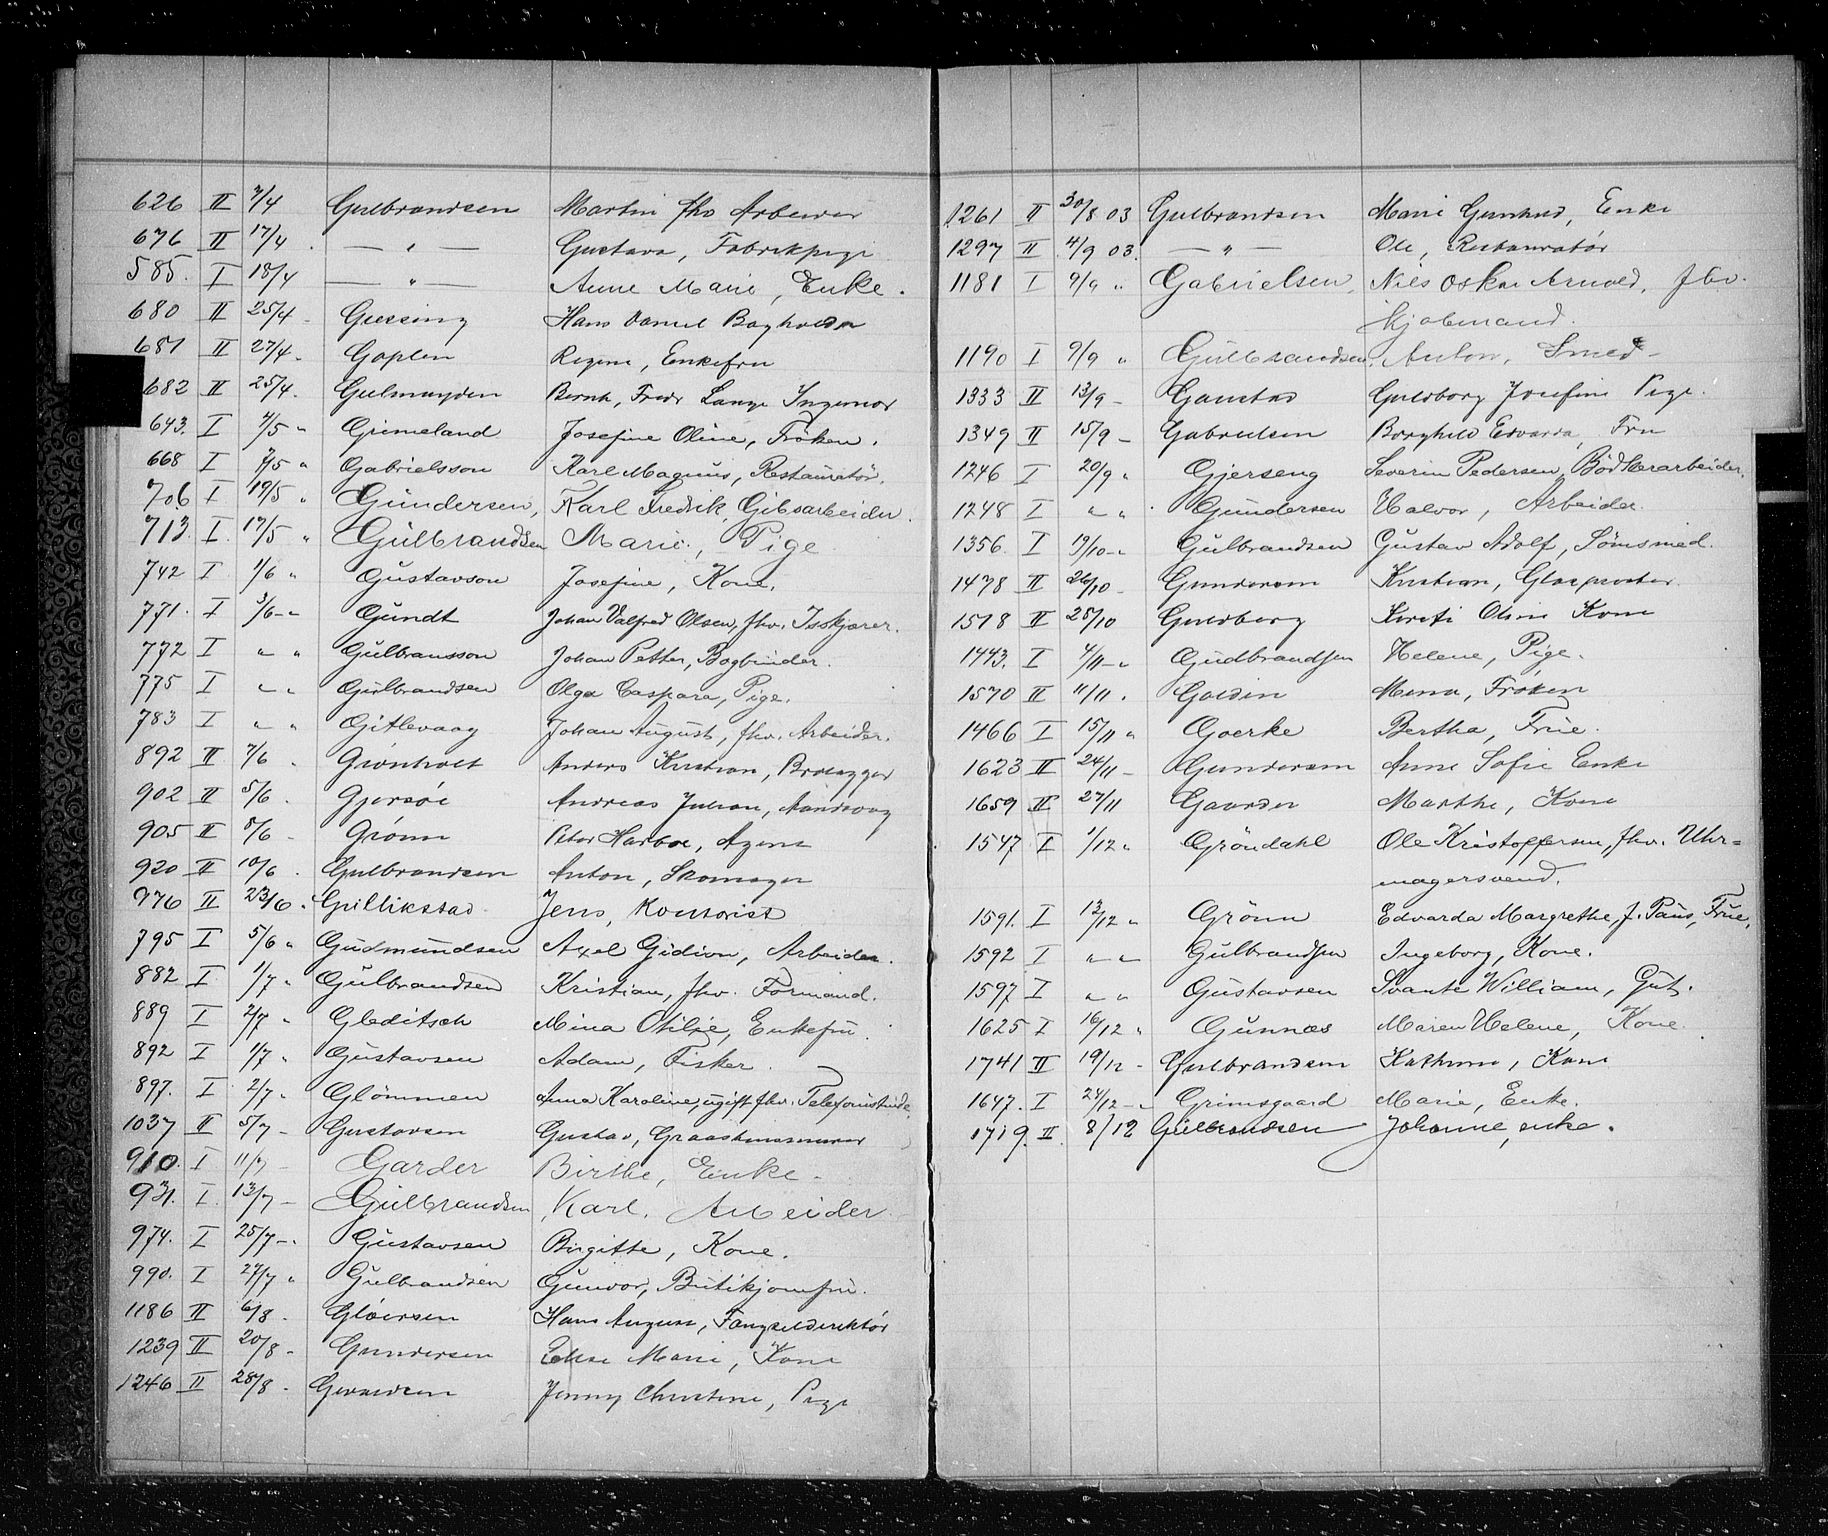 626 II 7/4 Gulbrandsen Martin fhv Arbeider
676 II 17/4 . — „ — Gustava, Fabrikpige
585. I 18/4 — „ — Anne Marie, Enke.
680 II 25/4 - Giessing Hans Daniel Bogholder
681 II 27/4 - Goplen Regine, Enkefru
682 II 25/4 - Gulmoyden Bernh, Fredr Lange Ingeniør
643. I 4/5 „ Grimeland Josefine Oline, Frøken.
668 I 7/5 „ Gabrielsson Karl Magnus, Restauratør.
706 I 19/5 „ Gundersen, Karl Fredrik, Gibsarbeider.
713. I. 17/5 „ Gulbrandsen Marie, Pige
742 I 1/6 „ Gustavson Josefine, Kone.
771. I 3/6 -„ Gundt Johan Valfred Olsen, fhv. Isskjærer.
772 I „ „ Gulbransson Johan Petter, Bogbinder.
775 I „ „ Gulbrandsen Olga Caspara, Pige.
783 I „ „ Gitlevaag Johan August, fhv. Arbeider.
892 II 7/6 - Grönholt Anders Kristian, Brolægger
902 II 5/6 . Gjersøe Andreas Julian,
905 II 8/6 - Grønn Peter Harboe, Agent
920 II 10/6 . Gulbrandsen Anton, Skomager
976 II 23/6 . Gullikstad Jens, Kontorist
795 I 5/6 „ Gudmundsen Axel Gidion, Arbeider.
882 I 1/7 „ Gulbrandsen Kristian, fhv. Formand.
889 I 2/7 „ Gleditsch Mina Otilie, Enkefru
892 I 1/7 „ Gustavsen Adam, Fisker.
897. I 2/7 „ Glömmen Anna Karoline, ugift fhv. Telefonistinde.
1037 II 5/7 - Gustavsen Gustav, Graastensmurer
910. I 11/7 - Garder Birthe, Enke.
931. I 13/7 - Gulbrandsen Karl. Arbeider.
974. I 25/7 -„ Gustavsen Birgitte, Kone.
990. I 27/7 „ Gulbrandsen Gunvor, Butikjomfru.
1186 II 6/8 . Gløersen Hans August, Fængselsdirektør
1239 II 20/8 - Gundersen Elise Marie, Kone
1246 II 28/8 . Jenny Christine, Pige
1261 II 30/8 03 Gulbrandsen Marie Gunhild, Enke
1297 II 4/9 03. — „ — Ole, Restauratør
1181 I 9/9 „ Gabrielsen, Nils Oskar Arnold, fhv.
kjøbmand.
1190 I 9/9 „ Gulbrandsen, Anton, Smed
1333 II 13/9 - Ganstad Guldborg Josefine Pige.
1349 II 15/9 - Gabrielsen Borghild Edvarda, Fru
1246 I 20/9 „ Gjerseng Severin Pedersen, Bödkerarbeider.
1248 I „ „ Gundersen Halvor, Arbeider.
1356 I 19/10 -„ Gulbrandsen Gustav Adolf, Sömsmed.
1478 II 26/10 - Gundersen Kristian, Glaspuster
1518 II 28/10 Guldborg Kirsti Olsen Kone
1443. I 4/11 -„ Gudbrandsen Helene, Pige.
1570 II 11/11 . Goldin Mina, Frøken
1466 I 15/11 „ Goerke Bertha, Frue.
1623 II 24/11 - Gundersen Anne Sofie Enke
1659 II 27/11 Gaarder Marthe, Kone
1547 I 1/12 „ Gröndahl Ole Kristoffersen, fhv. Uhr=
magersvend.
1591. I 12/12 „ Grönn Edvarda Margrethe, f. Paus, Frue,
1592 I „ „ Gulbrandsen Ingeborg, Kone.
1597 I „ „ Gustavsen Svante William, Gut.
1625 I 16/12 „ Gunnæs Maren Helene, Kone
1741 II 19/12 - Gulbrandsen Kathrine, Kone
1647. I 24/12 -„ Grimsgaard Marie, Enke.
1719. II. 8/12 Gulbrandsen Johanne, enke.